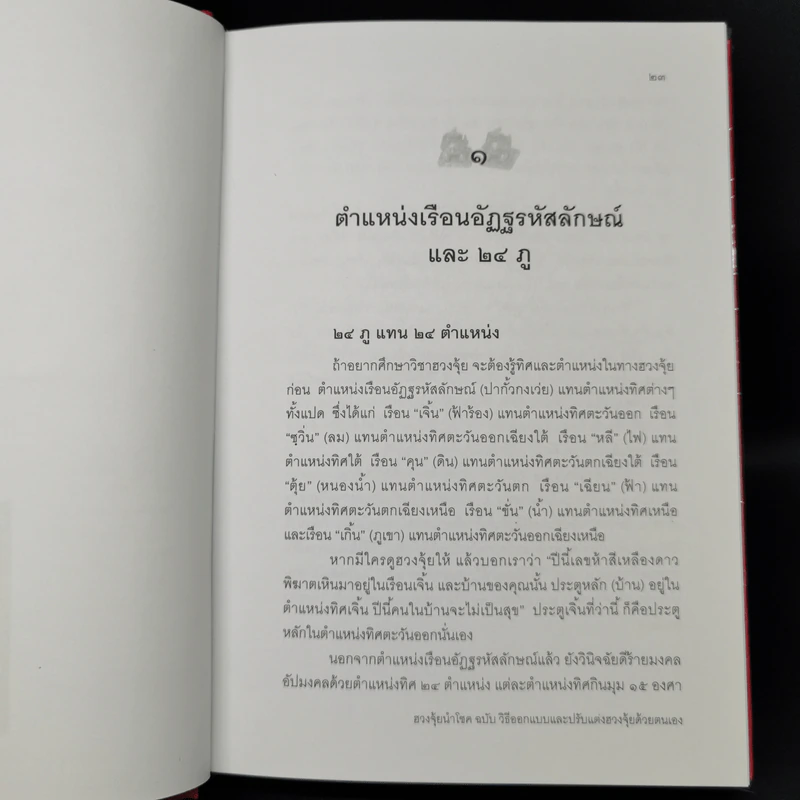 ๒๓
๑
ตำแหน่งเรือนอัฏฐรหัสลักษณ์
และ ๒๔ ภู
๒๔ ภู แทน ๒๔ ตำแหน่ง
ถ้าอยากศึกษาวิชาฮวงจุ้ย จะต้องรู้ทิศและตำแหน่งในทางฮวงจุ้ย
ก่อน ตำแหน่งเรือนอัฏฐรหัสลักษณ์ (ปากั้วกงเว่ย) แทนตำแหน่งทิศต่างๆ
ทั้งแปด ซึ่งได้แก่ เรือน “เจิ้น” (ฟ้าร้อง) แทนตำแหน่งทิศตะวันออก เรือน
“ซุวิ่น” (ลม) แทนตำแหน่งทิศตะวันออกเฉียงใต้ เรือน “หลี” (ไฟ) แทน
ตำแหน่งทิศใต้ เรือน “คุน” (ดิน) แทนตำแหน่งทิศตะวันตกเฉียงใต้ เรือน
“ตุ้ย” (หนองน้ำ) แทนตำแหน่งทิศตะวันตก เรือน “เฉียน” (ฟ้า) แทน
ตำแหน่งทิศตะวันตกเฉียงเหนือ เรือน “ขั่น” (น้ำ) แทนตำแหน่งทิศเหนือ
และเรือน “เกิ้น” (ภูเขา) แทนตำแหน่งทิศตะวันออกเฉียงเหนือ
หากมีใครดูฮวงจุ้ยให้ แล้วบอกเราว่า “ปีนี้เลขห้าสีเหลืองดาว
พิฆาตเหินมาอยู่ในเรือนเจิ้น และบ้านของคุณนั้น ประตูหลัก (บ้าน) อยู่ใน
ตำแหน่งทิศเจิ้น ปีนี้คนในบ้านจะไม่เป็นสุข” ประตูเจิ้นที่ว่านี้ ก็คือประตู
หลักในตำแหน่งทิศตะวันออกนั่นเอง
นอกจากตำแหน่งเรือนอัฏฐรหัสลักษณ์แล้ว ยังวินิจฉัยดีร้ายมงคล
อัปมงคลด้วยตำแหน่งทิศ ๒๔ ตำแหน่ง แต่ละตำแหน่งทิศกินมุม ๑๕ องศา
ฮวงจุ้ยนำโชค ฉบับ วิธีออกแบบและปรับแต่งฮวงจุ้ยด้วยตนเอง